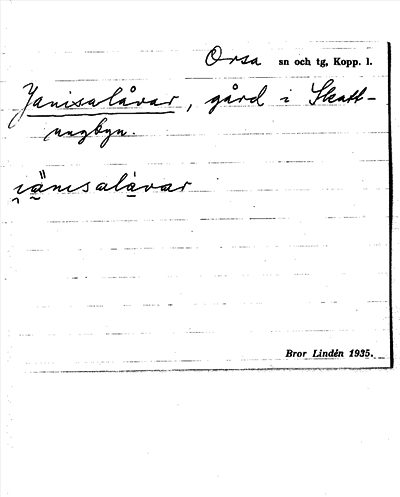 Orsa sn och tg, Kopp. l.
Janisalåvar, gård i Skatt-
ungbyn.
i̯ä̀nisalåvar
Bror Lindén 1935.